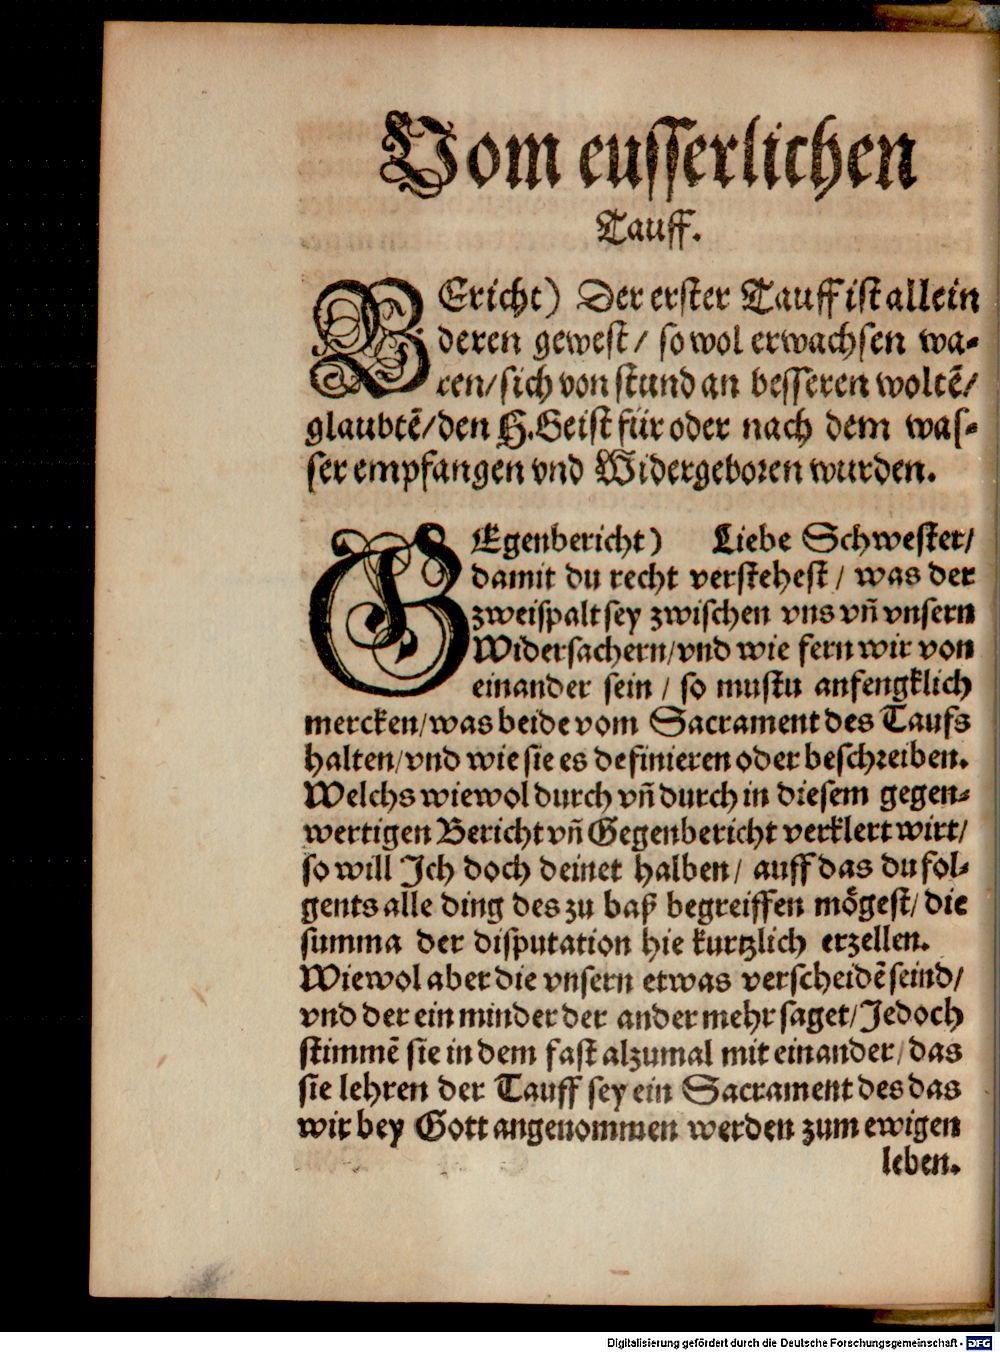 Vom eusserlichen
Tauff.
BEricht) Der erster Tauff ist allein
deren gewest/ so wol erwachsen wa-
ren/ sich von stund an besseren woltẽ/
glaubtẽ/ den H. Geist für oder nach dem was-
ser empfangen vnd Widergeboren wurden.
GEgenbericht) Liebe Schwester/
damit du recht verstehest/ was der
zweispalt sey zwischen vns vñ vnsern
Widersachern/ vnd wie fern wir von
einander sein/ so mustu anfengklich
mercken/ was beide vom Sacrament des Taufs
halten/ vnd wie sie es definieren oder beschreiben.
Welchs wiewol durch vñ durch in diesem gegen-
wertigen Bericht vñ Gegenbericht verklert wirt/
so will Ich doch deinet halben/ auff das du fol-
gents alle ding des zu baß begreiffen mögest/ die
summa der disputation hie kurtzlich erzellen.
Wiewol aber die vnsern etwas verscheidẽ seind/
vnd der ein minder der ander mehr saget/ Jedoch
stimmẽ sie in dem fast alzumal mit einander/ das
sie lehren der Tauff sey ein Sacrament des das
wir bey Gott angenommen werden zum ewigen
leben.
Digitalisierung gefördert durch die Deutsche Forschungsgemeinschaft - DFG